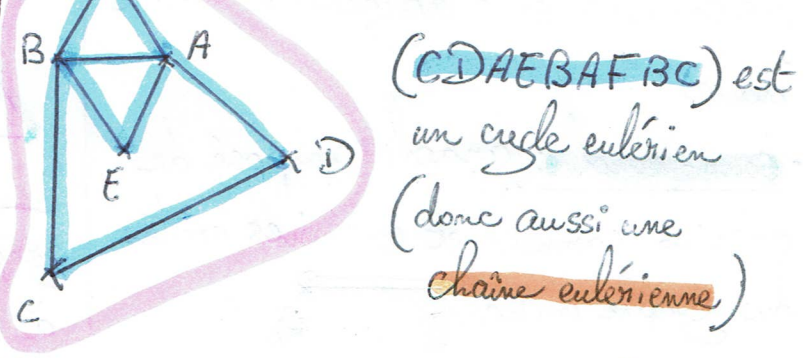 B
A
E
D
C
(CDAEBAFBC) est
un cycle eulérien
(donc aussi une
chaîne eulérienne)